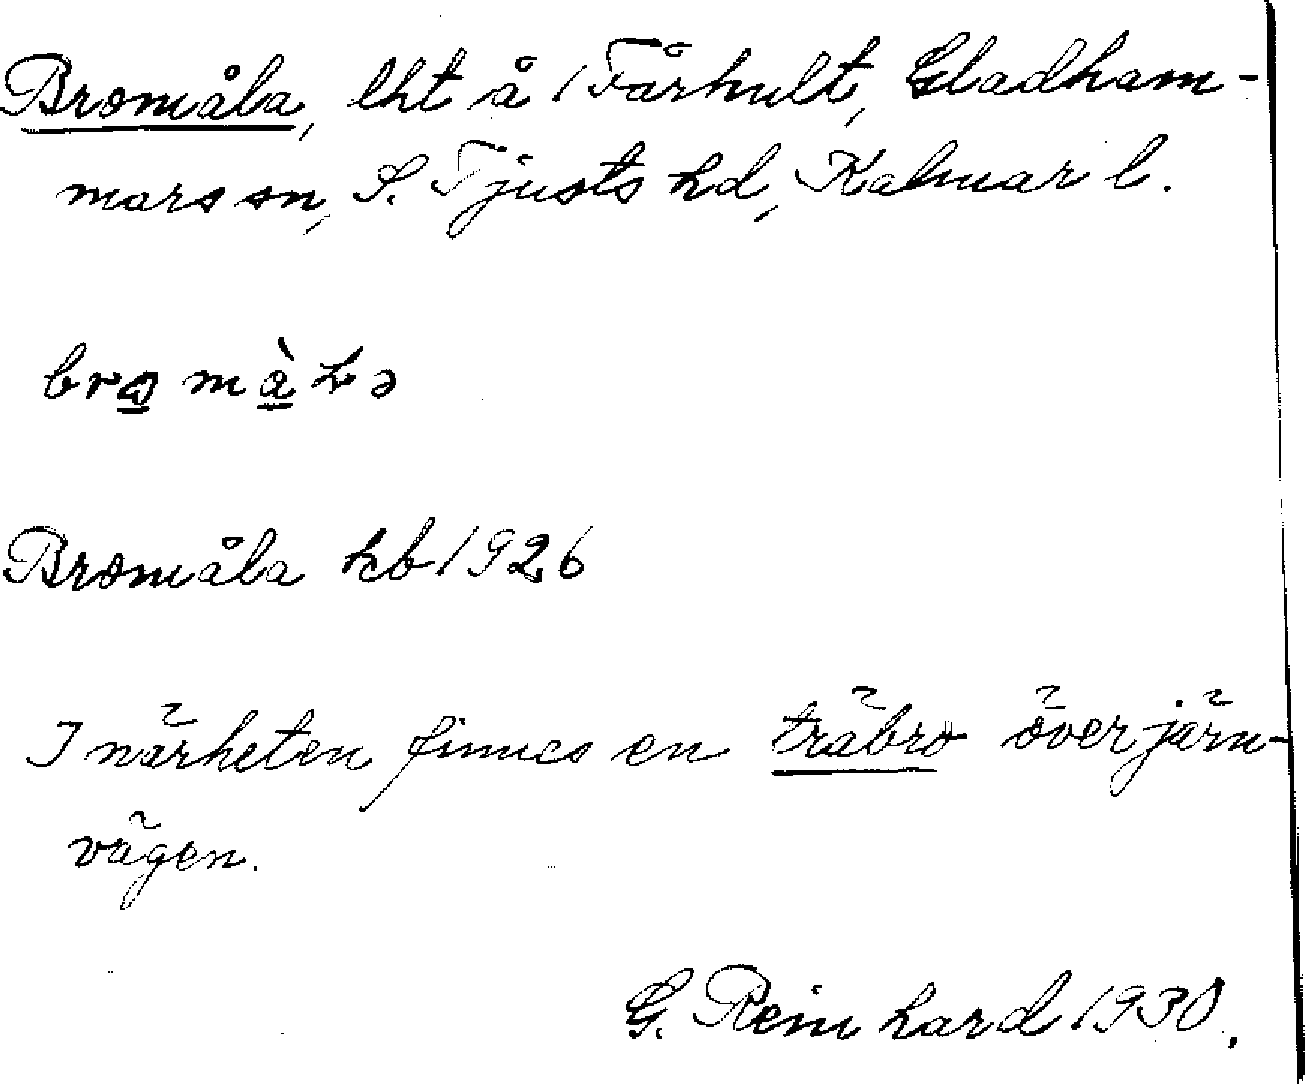 Bromåla, lht å 1 Fårhult, Gladham-
mars sn, S. Tjusts hd, Kalmar l.
bromàLə
Bromåla kb 1926
I närheten finnes en träbro över järn-
vägen.
G. Reinhard 1930.